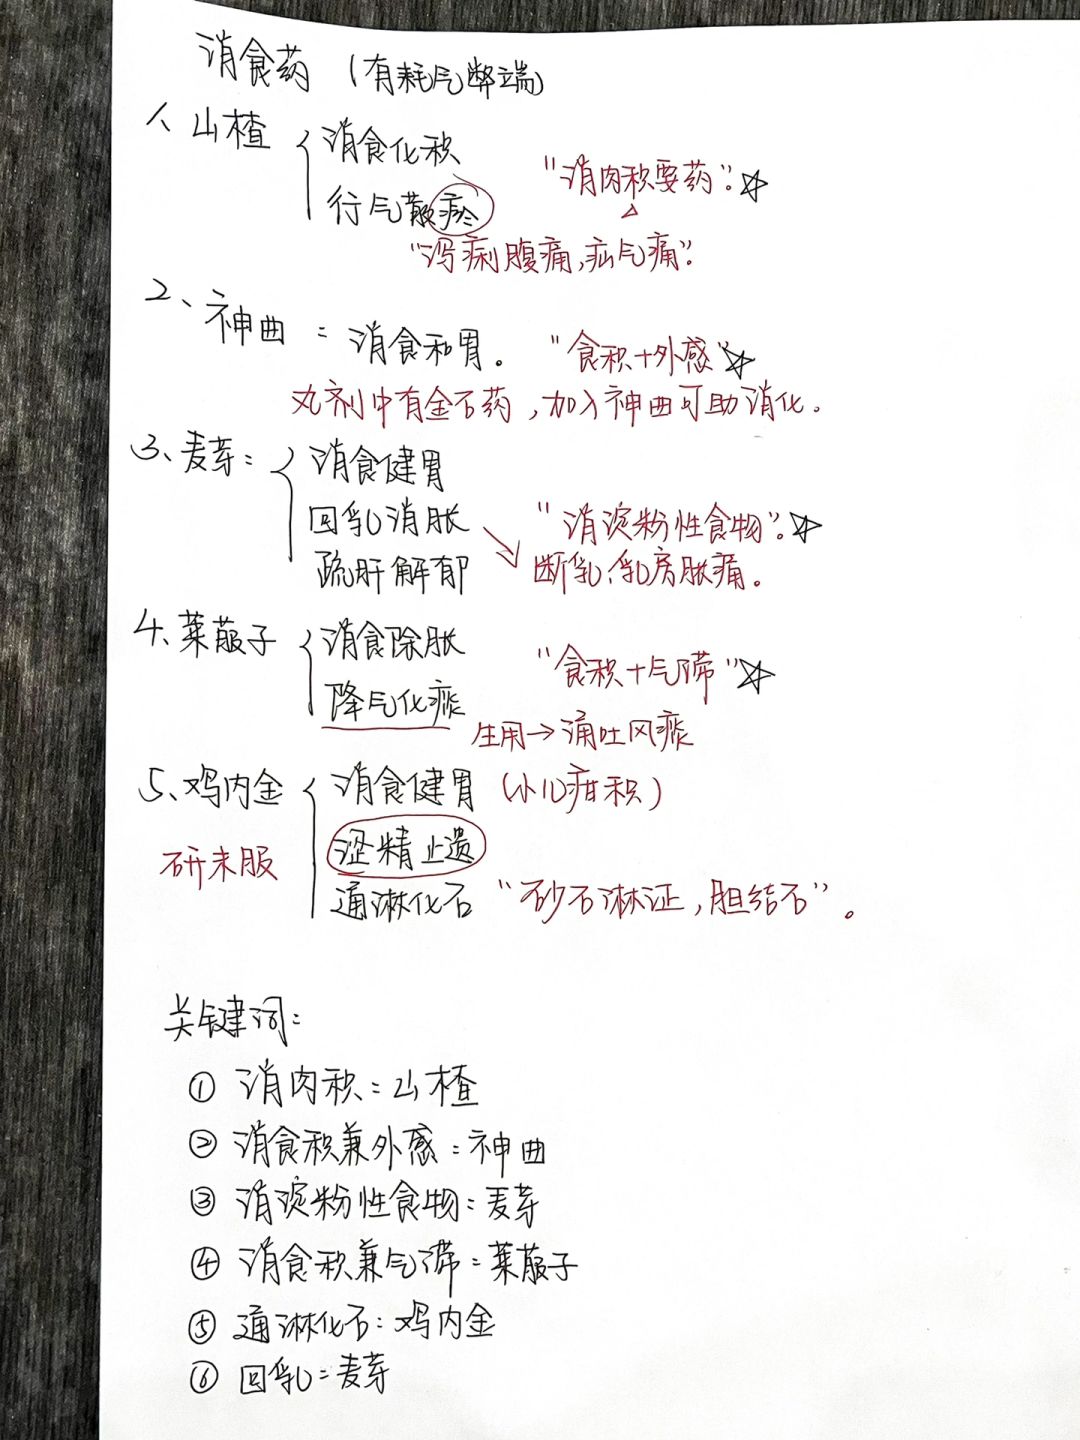 消食药（有耗气弊端）
1、山楂 { 消食化积
行气散瘀
"消肉积要药"☆
"泻痢腹痛,疝气痛".
2、神曲：消食和胃。"食积+外感"☆
丸剂中有金石药,加入神曲可助消化.
3、麦芽：{ 消食健胃
回乳消胀 "消淀粉性食物"☆
疏肝解郁 → 断乳、乳房胀痛。
4、莱菔子 { 消食除胀 "食积+气滞"☆
降气化痰
生用→涌吐风痰
5、鸡内金 { 消食健胃 (小儿疳积)
涩精止遗
研末服
通淋化石 "砂石淋证,胆结石"。
关键词:
① 消肉积：山楂
② 消食积兼外感：神曲
③ 消淀粉性食物：麦芽
④ 消食积兼气滞：莱菔子
⑤ 通淋化石：鸡内金
⑥ 回乳：麦芽